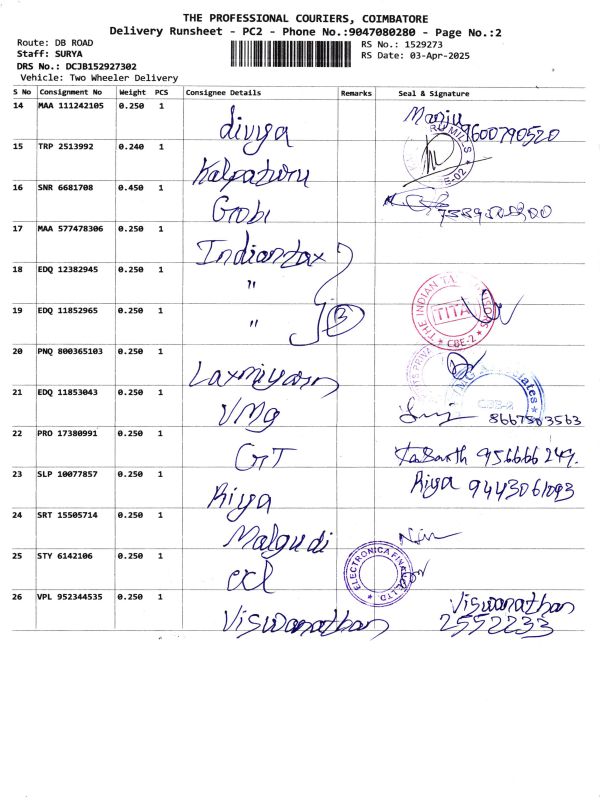 THE PROFESSIONAL COURIERS, COIMBATORE
Delivery Runsheet - PC2 - Phone No.:9047080280 - Page No.:2
Route: DB ROAD
Staff: SURYA
DRS No.: DCJB152927302
Vehicle: Two Wheeler Delivery
RS No.: 1529273
RS Date: 03-Apr-2025
S No Consignment No Weight PCS Consignee Details Remarks Seal & Signature
14 MAA 111242105 0.250 1 divya Manju 9600790520
15 TRP 2513992 0.240 1 Kalpaturu
16 SNR 6681708 0.450 1 Gobi
17 MAA 577478306 0.250 1 Indiantax
18 EDQ 12382945 0.250 1 "
19 EDQ 11852965 0.250 1 " 3 THE INDIAN TITA CBE-2
20 PNQ 800365103 0.250 1
21 EDQ 11853043 0.250 1 VMG 8667503563
22 PRO 17380991 0.250 1 GT 956666249.
23 SLP 10077857 0.250 1 Riya Riya 9443061093
24 SRT 15505714 0.250 1 Malgudi
25 STY 6142106 0.250 1 ELECTRONICA FINANCE LTD
26 VPL 952344535 0.250 1 Viswanathan Viswanathan
2552233